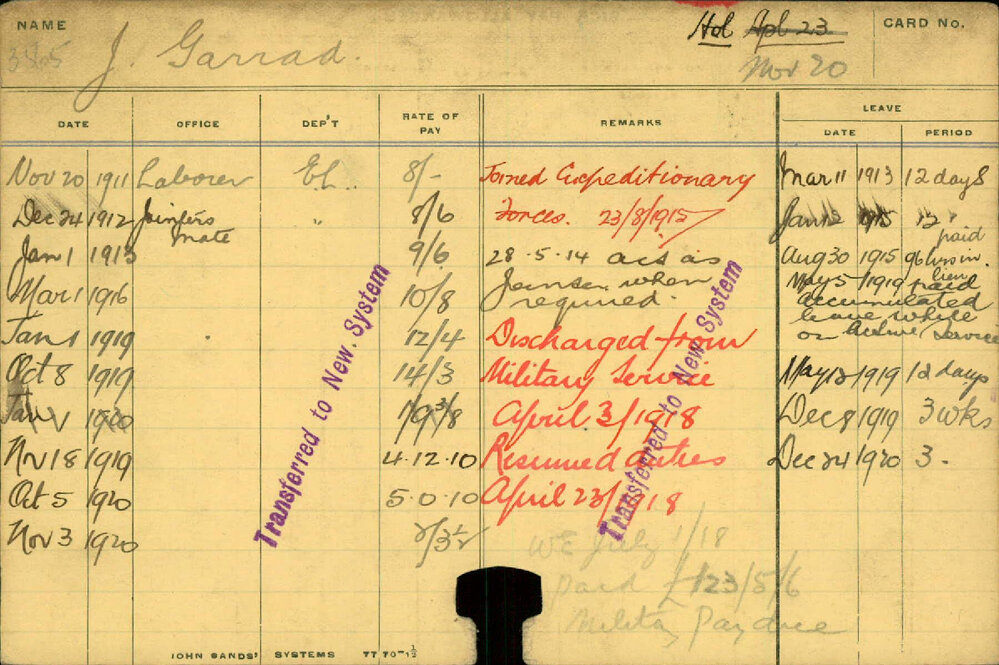 NAME
J. Garrad.
Hol Apl 23
Nov 20
CARD No.
3865
DATE OFFICE DEP'T RATE OF PAY REMARKS LEAVE
DATE PERIOD
Nov 20 1911 Laborer EL. 8/- Joined Expeditionary Mar 11 1913 12 days
Dec 24 1912 Jointers " 8/6 Forces. 23/8/1915 Jan 12 1915 12 "
mate
paid
Jan 1 1913 9/6 28.5.14 act as Aug 30 1915 96 hrs in lieu
Mar 1 1916 10/8 Jointer when May 5 1919 paid
required. accumulated
leave while
on Active Service
Jan 1 1919 12/4 Discharged from
Oct 8 1919 14/3 Military Service May 13 1919 12 days
Jan 1 1920 April 3/1918 Dec 8 1919 3 wks
Nov 18 1919 4.12.10 Resumed duties Dec 24 1920 3.
Oct 5 1920 5.0.10 April 23/1918
Nov 3 1920 2/3½
WE July 1/18
paid £123/5/6
Military Pay due
Transferred to New System
Transferred to New System
JOHN SANDS' SYSTEMS 7770-1½